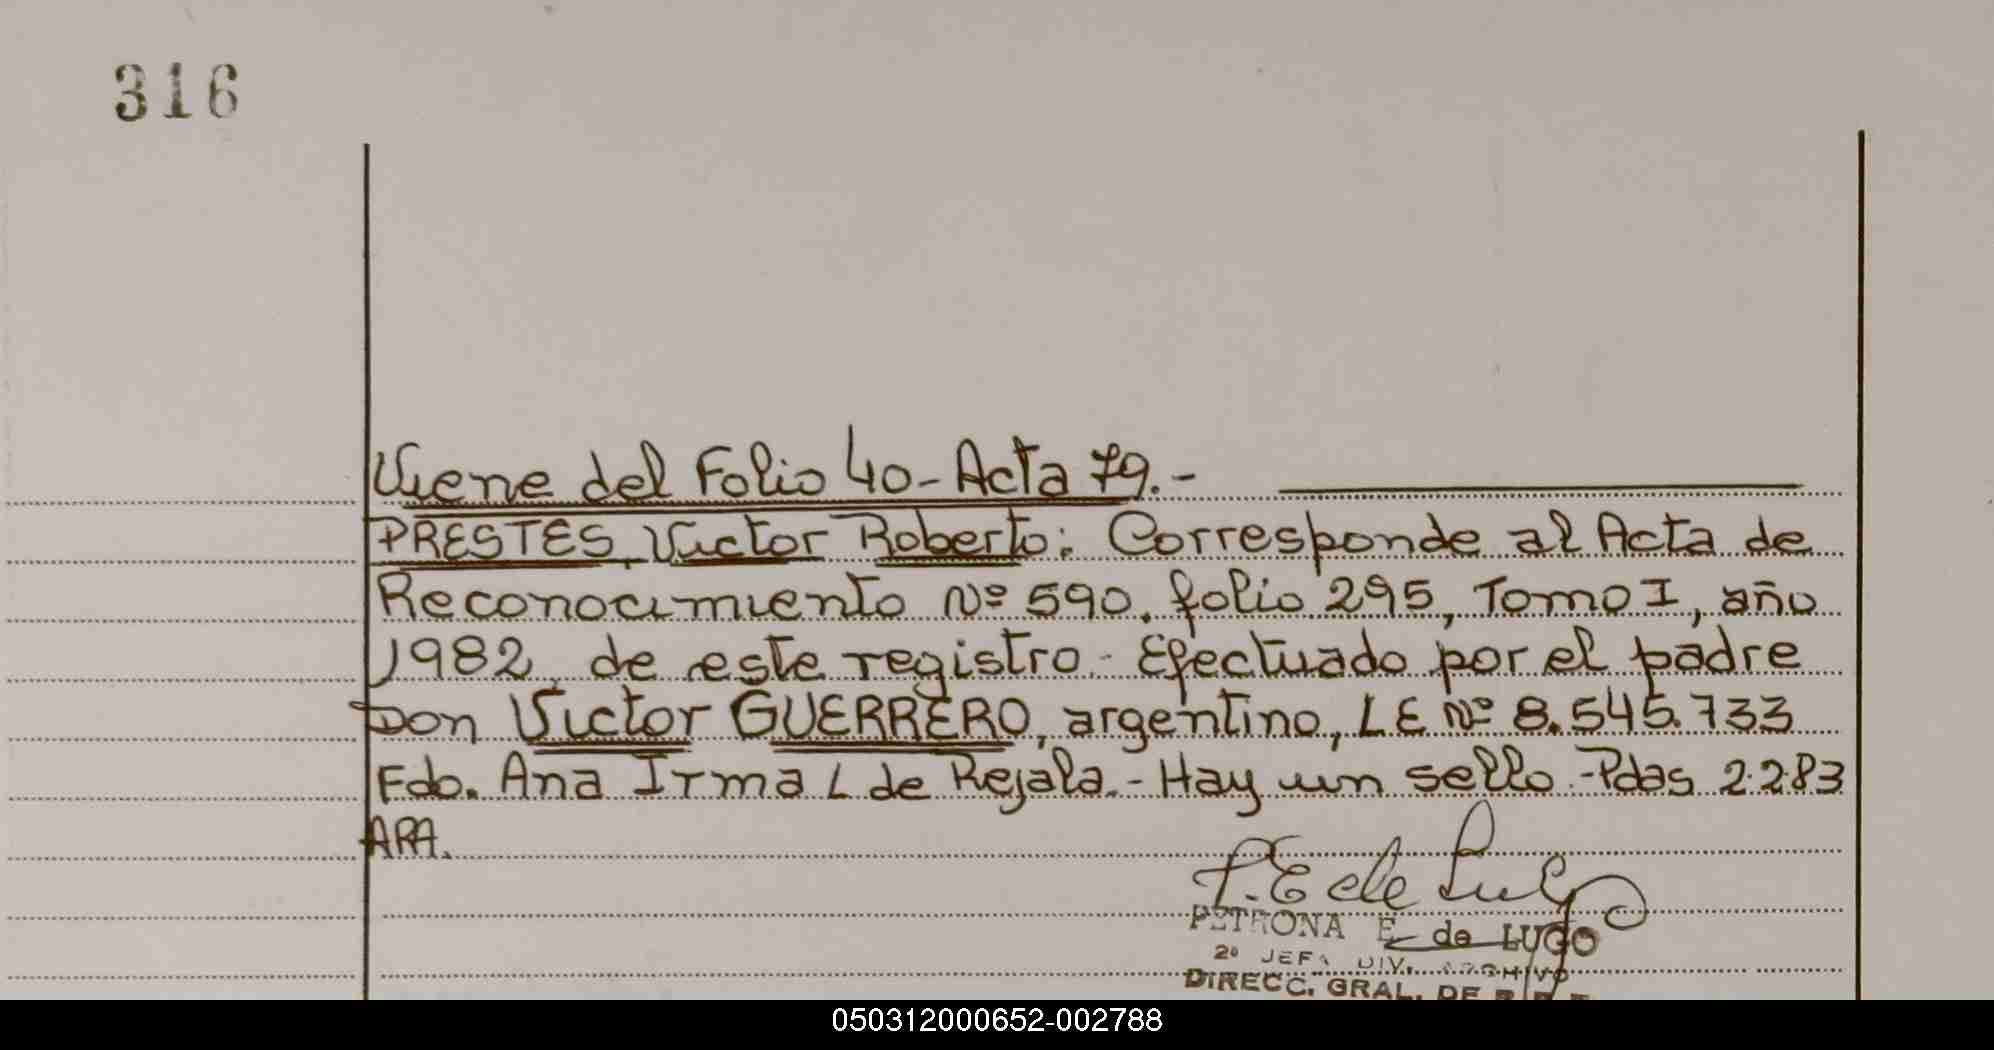 316
Viene del Folio 40 - Acta 79.-
PRESTES, Victor Roberto: Corresponde al Acta de
Reconocimiento Nº 590, folio 295, Tomo I, año
1982, de este registro - Efectuado por el padre
Don Victor GUERRERO, argentino, L E Nº 8.545.733
Fdo. Ana Irma L de Rejala.- Hay un sello.- Pdas 2.2.83
ARA.
P. E de Lugo
PETRONA E. de LUGO
2º JEFA DIV. ARCHIVO
DIRECC. GRAL. DE
050312000652-002788